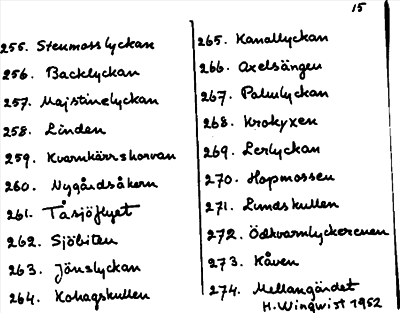 15
255. Stenmosslyckan
256. Backlyckan
257. Majstinelyckan
258. Linden
259. Kvarnkärrshorvan
260. Nygårdsåkern
261. Tåsjöflyet
262. Sjöbiten
263. Jönslyckan
264. Kohagskullen
265. Kanallyckan
266. Axelsängen
267. Palmlyckan
268. Krokyxen
269. Lerlyckan
270. Hopmossen
271. Lundskullen
272.
273. Kåven
274. Mellangärdet
H. Winqvist 1952